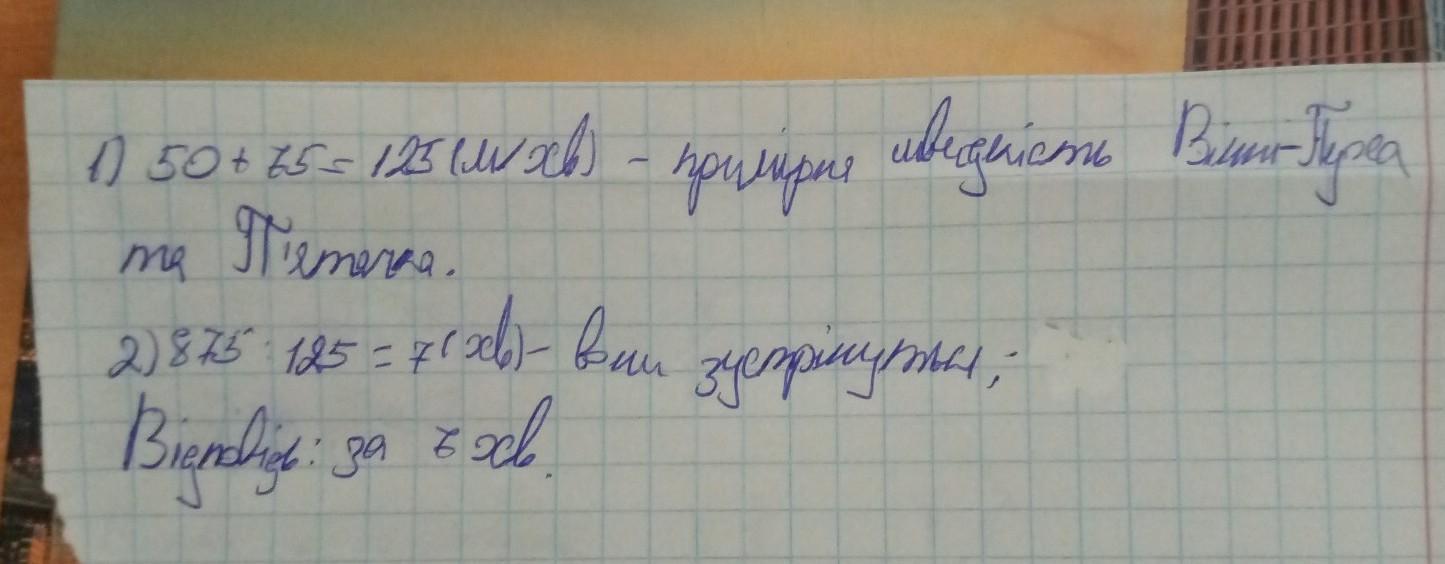 1) 50 + 75 = 125 (м/хв) - примірня швидкість Вінні-Пуха
та П'ятачка.
2) 875 : 125 = 7 (хв) - вони зустрінуться;
Відповідь: за 7 хв.